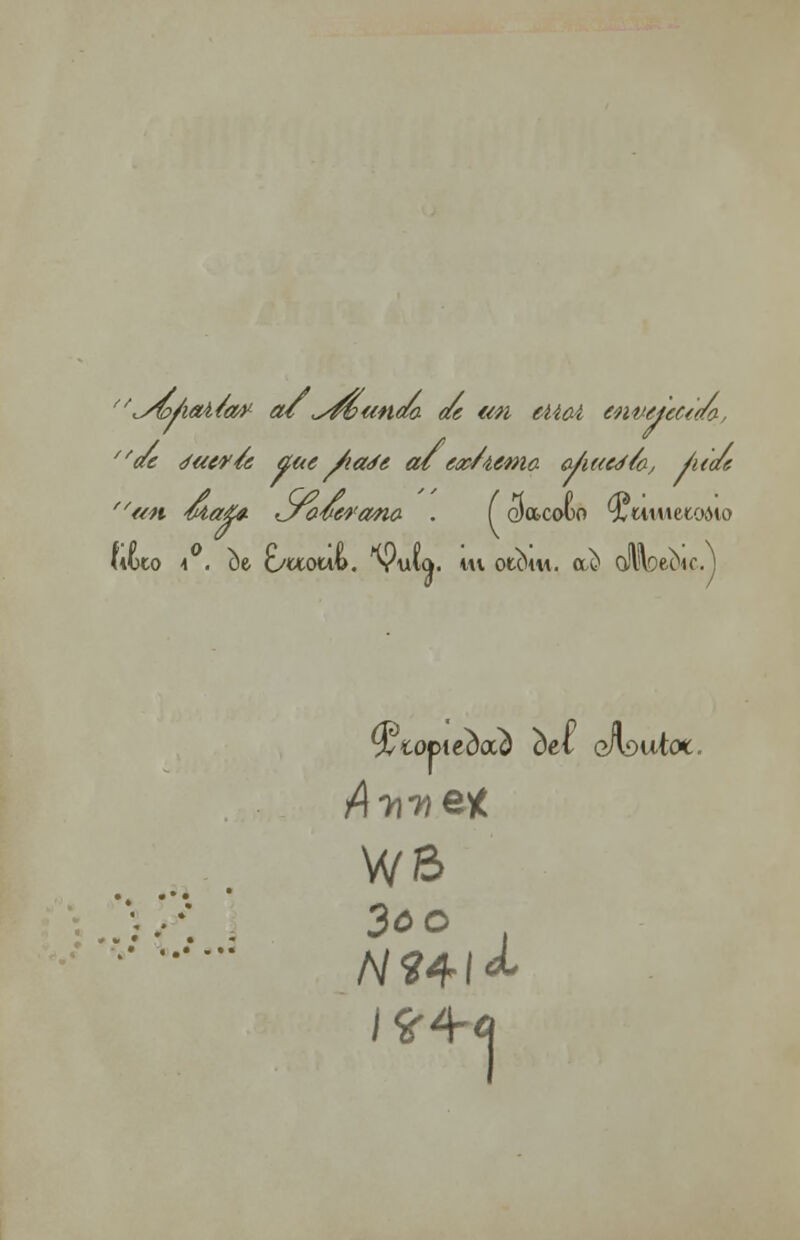 "Apartar al Mundo de un error envejecido,
"de suerte que pase al extremo opuesto, pide
"un brazo Soberano". (Jacobo Primerosio
libro 1º. de Errorib. Vulg. in ordin. ad Medic.)
Propiedad del Autor.
Annex
WB
300
N241d
1849